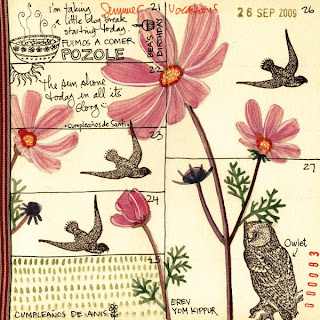 i'm taking
a little blog break
starting today
Summer Vacations
FUIMOS A COMER
POZOLE
21
BEA'S
BIRTHDAY
26 SEP 2009
26
The sun shone
today in all its
glory
22
•cumpleaños de Santi•
23
24
25
27
Owlet
000083
CUMPLEAÑOS DE ANIS.
EREV
YOM KIPPUR